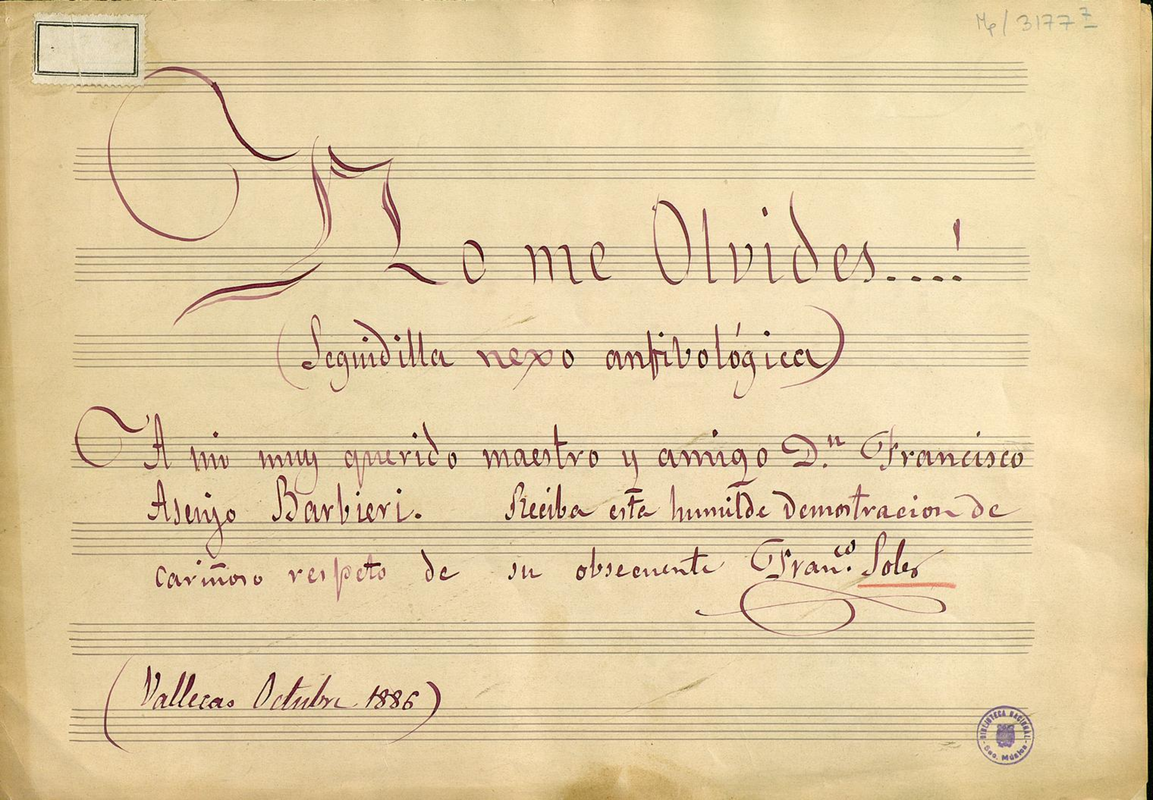 Mp/3177 7
No me Olvides....!
(Seguidilla nexo anfibológica)
A mi muy querido maestro y amigo D.n Francisco
Asenjo Barbieri. Reciba esta humilde demostracion de
cariñoso respeto de su obsecuente Fran.co Soler
(Vallecas Octubre 1886)
BIBLIOTECA NACIONAL
Sec. Música